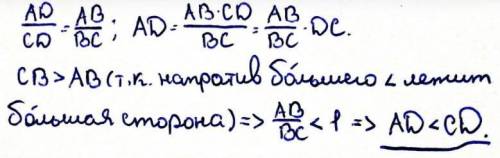 AD/CD = AB/BC; AD = AB·CD/BC = AB/BC · DC.
CB > AB (т.к. напротив большего ∠ лежит
большая сторона) => AB/BC < 1 => AD < CD.